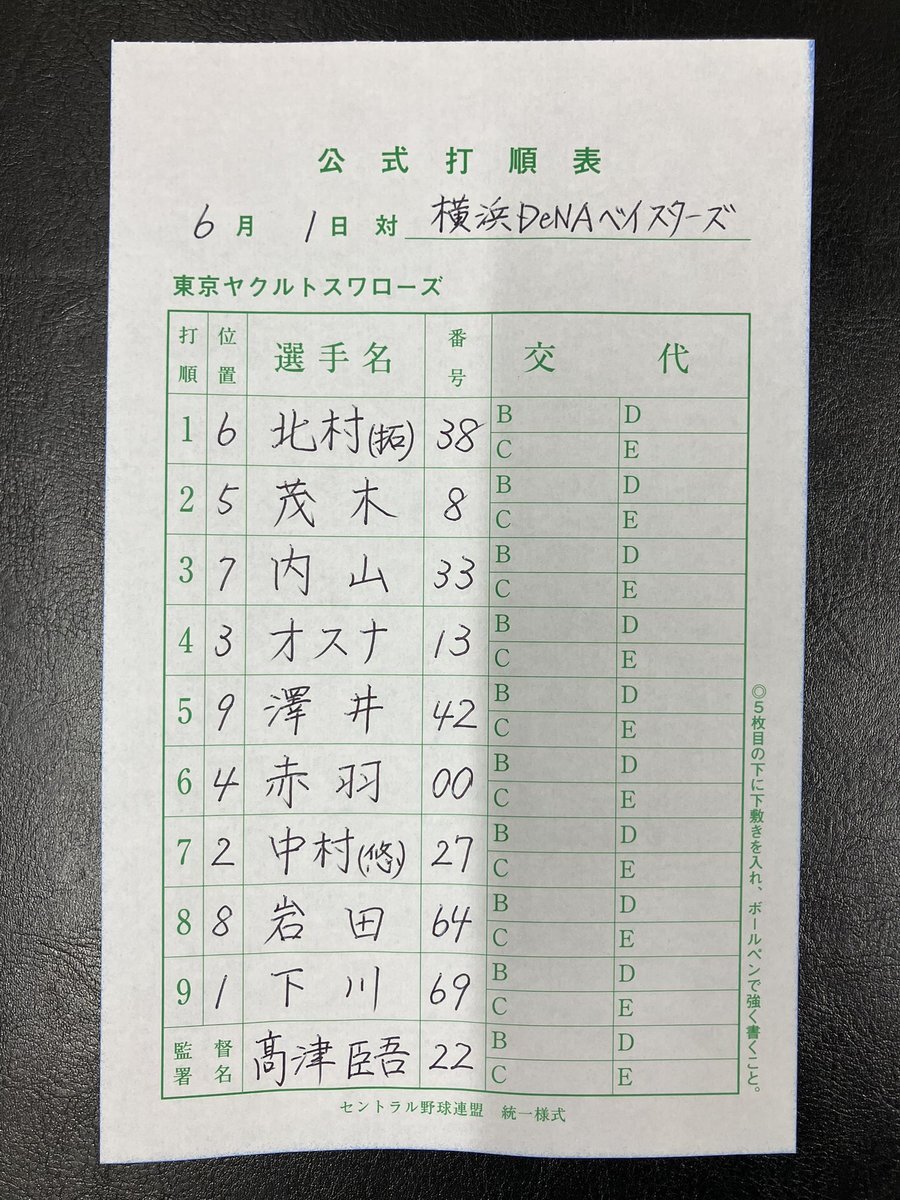 公式打順表
6月 1日 対 横浜DeNAベイスターズ
東京ヤクルトスワローズ
打順 位置 選手名 番号 交代
1 6 北村(拓) 38 B D
C E
2 5 茂木 8 B D
C E
3 7 内山 33 B D
C E
4 3 オスナ 13 B D
C E
5 9 澤井 42 B D
C E
6 4 赤羽 00 B D
C E
7 2 中村(悠) 27 B D
C E
8 8 岩田 64 B D
C E
9 1 下川 69 B D
C E
監督署名 髙津臣吾 22 B D
C E
セントラル野球連盟 統一様式
◎5枚目の下に下敷きを入れ、ボールペンで強く書くこと。